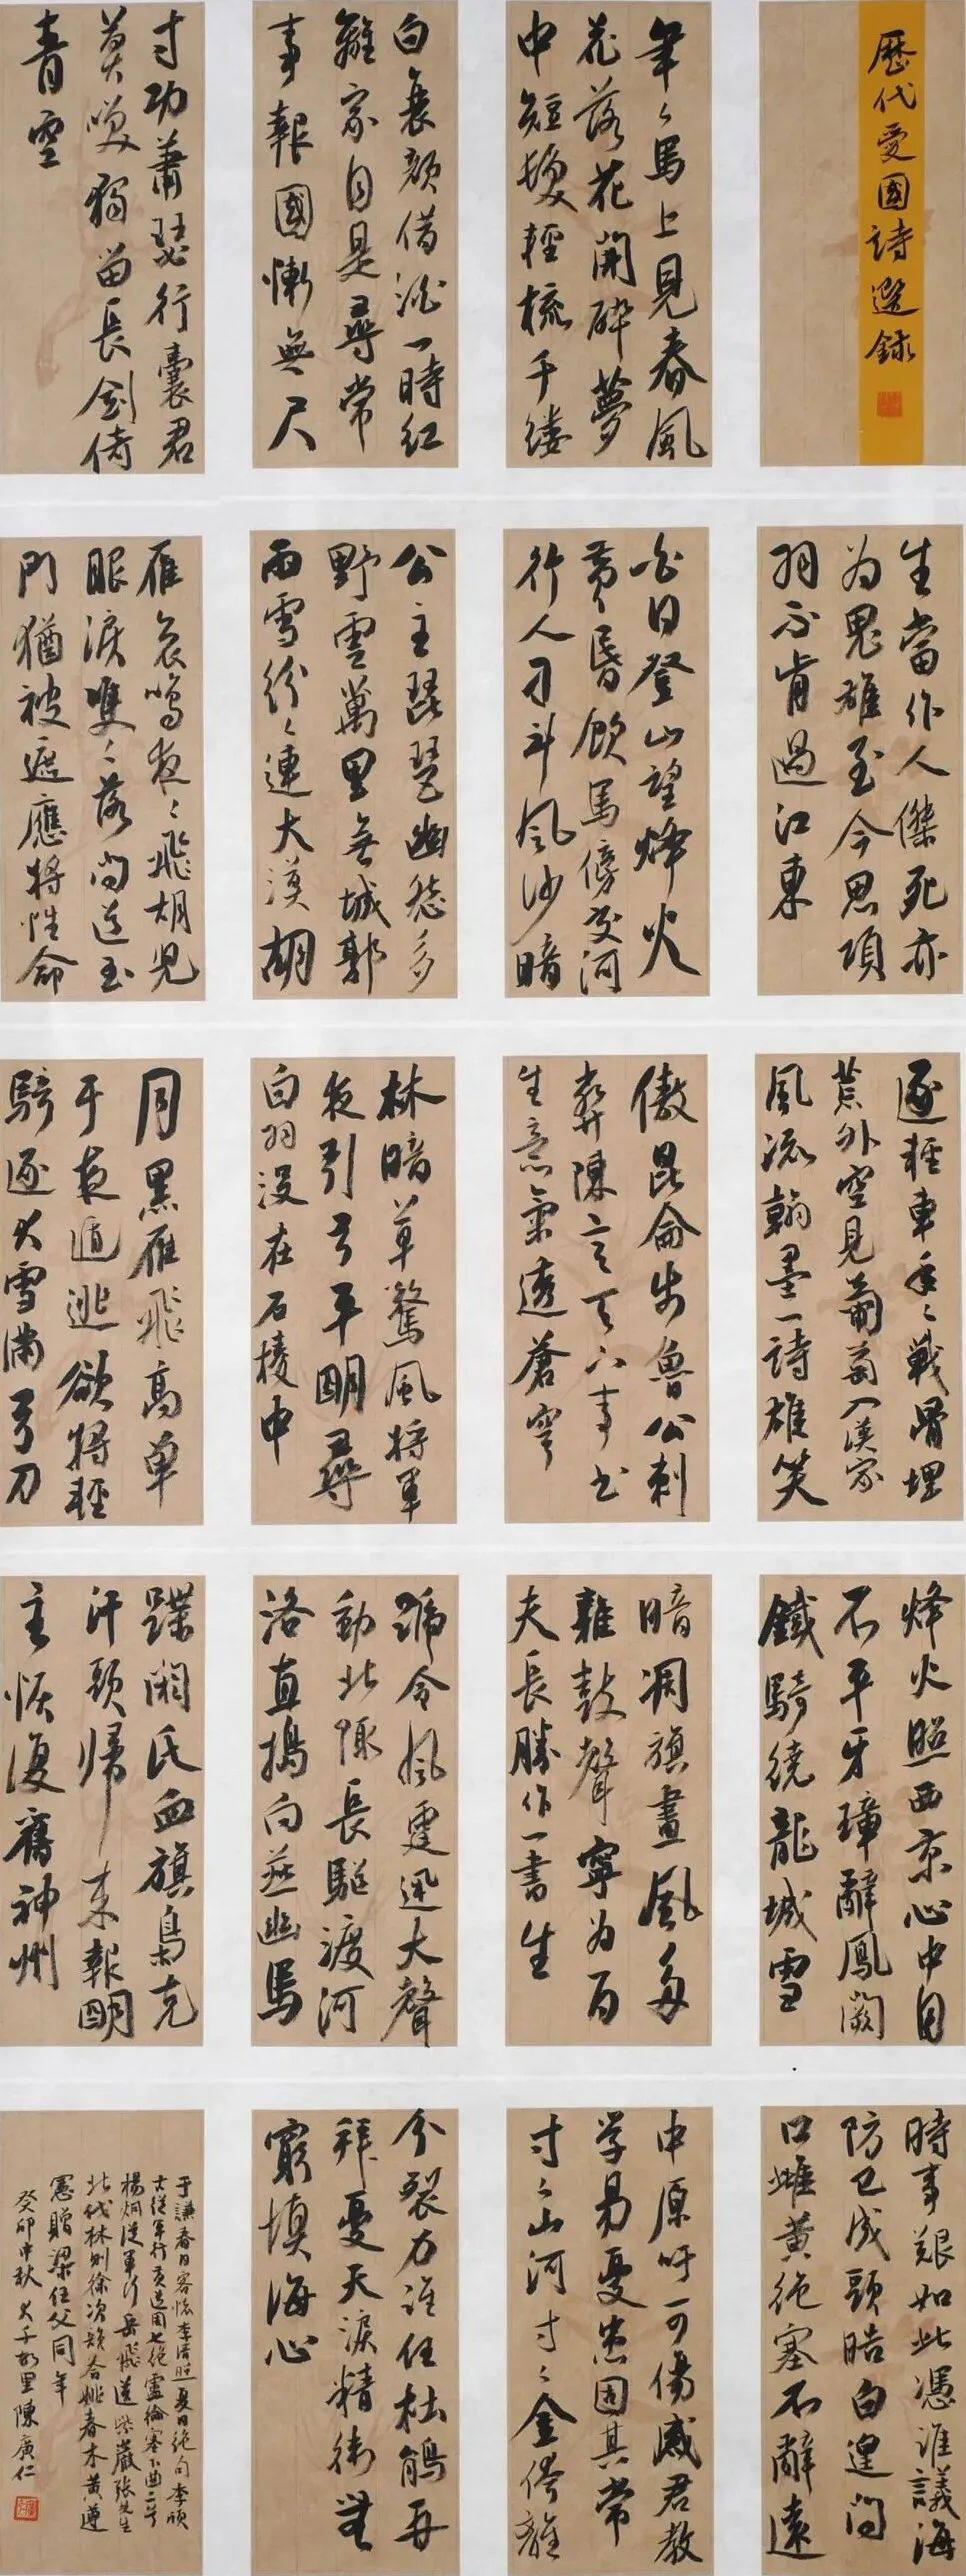 歷代愛國詩選錄
年〻馬上見春風
花落花開醉夢
中短髮輕梳千縷
白衰顏借酒一時紅
離家自是尋常
事報國慚無尺
寸功蕭瑟行囊君
莫嘆獨留長劍倚
青空
生當作人傑死亦
為鬼雄至今思項
羽不肯過江東
白日登山望烽火
黃昏飲馬傍交河
行人刁斗風沙暗
公主琵琶幽怨多
野雲萬里無城郭
雨雪紛〻連大漠胡
雁哀鳴夜〻飛胡兒
眼淚雙〻落聞道玉
門猶被遮應將性命
逐輕車年〻戰骨埋
荒外空見葡萄入漢家
風流翰墨一詩雄笑
傲昆侖步魯公刺
弊陳言天下事書
生意氣透蒼穹
林暗草驚風將軍
夜引弓平明尋
白羽沒在石棱中
月黑雁飛高單
于夜遁逃欲將輕
騎逐大雪滿弓刀
烽火照西京心中自
不平牙璋辭鳳闕
鐵騎繞龍城雪
暗凋旗畫風多
雜鼓聲寧為百
夫長勝作一書生
號令風霆迅大聲
動北陬長驅渡河
洛直搗向燕幽馬
蹀閼氏血旗梟克
汗頭歸來報明
主恢復舊神州
時事艱如此憑誰議海
防已成頭皓白遑問
口雌黃絕塞不辭遠
中原吁可傷感君教
学易憂患固其常
寸〻山河寸〻金侉離
分裂力誰任杜鵑再
拜憂天淚精衛無
窮填海心
于謙春日客懷李清照夏日絕句李頎
古從軍行黃道周七絕盧綸塞下曲二首
楊炯從軍行岳飛送紫巖張先生
北伐林則徐次韻答姚春木黃遵
憲贈梁任父同年
癸卯中秋大千故里陳廣仁